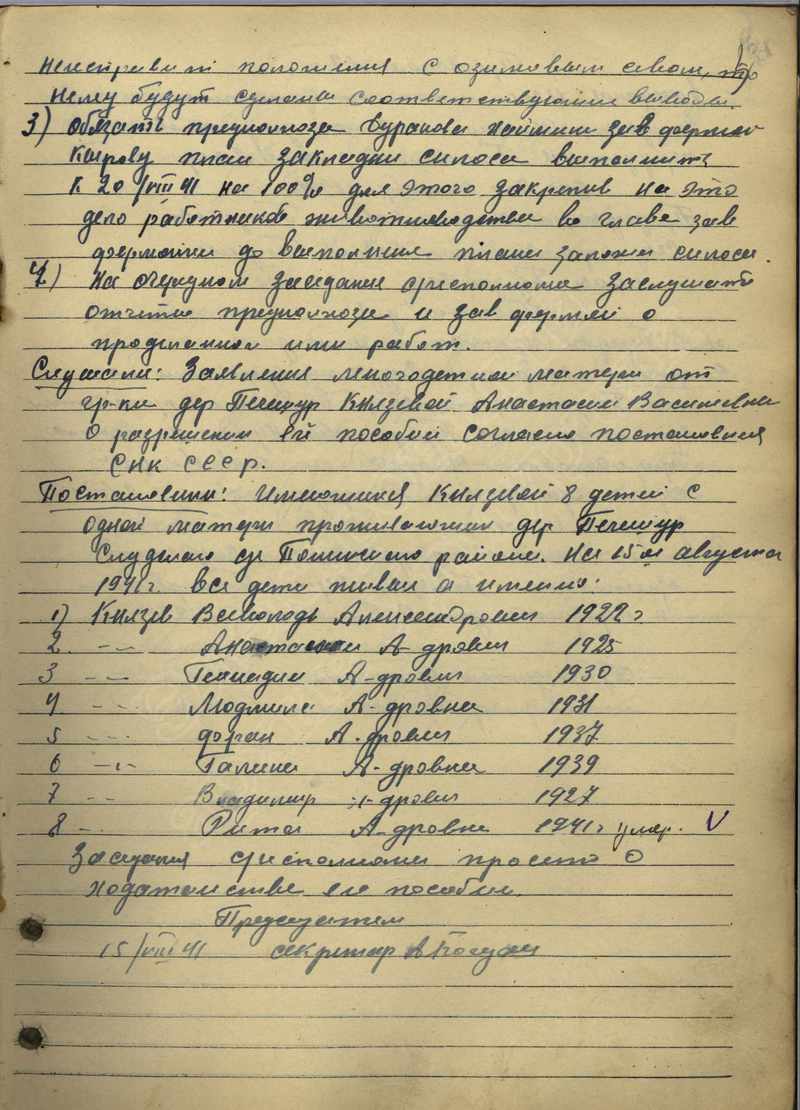 неисправит положения с озимовым севом, то
к нему будут сделаны соответствующие выводы.
3) Обязать предколхоза Буракова зав фермой
Кырову план закладки силоса выполнить
к 20/VIII 41 на 100% для этого закрепив на это
дело работников животноводства во главе зав
фермами до выполнения плана заложки силоса.
4) На очередном заседании с/исполкома заслушать
отчеты предколхоза и зав фермой о
проделанной ими работ.
Слушали: Заявления многодетной матери от
гр-ки дер Пенешур Князевой Анастасии Василевны
о разрешении ей пособий согласно постановления
СНК СССР.
Постановили: Имеющихся Князевой 8 детей с
одной матери проживающих дер
с/с района. На 15 ое августа
1941 г. все дети живы а именно:
1) Князев Всеволодь Александрович 1922 г
2. -"- А-дрович 1925
3 -"- Генадий А-дрович 1930
4 -"- Людмила А-дровна 1931
5 -"- А-дрович 1937
6 -"- Галина А-дровна 1939
7 -"- Владимир А-дрович 1927
8 -"- Рита А-дровна 1941 г умер. V
Заседания с/исполкома просит о
ходатайстве ей пособии.
Председатель
15/VIII 41 секретар